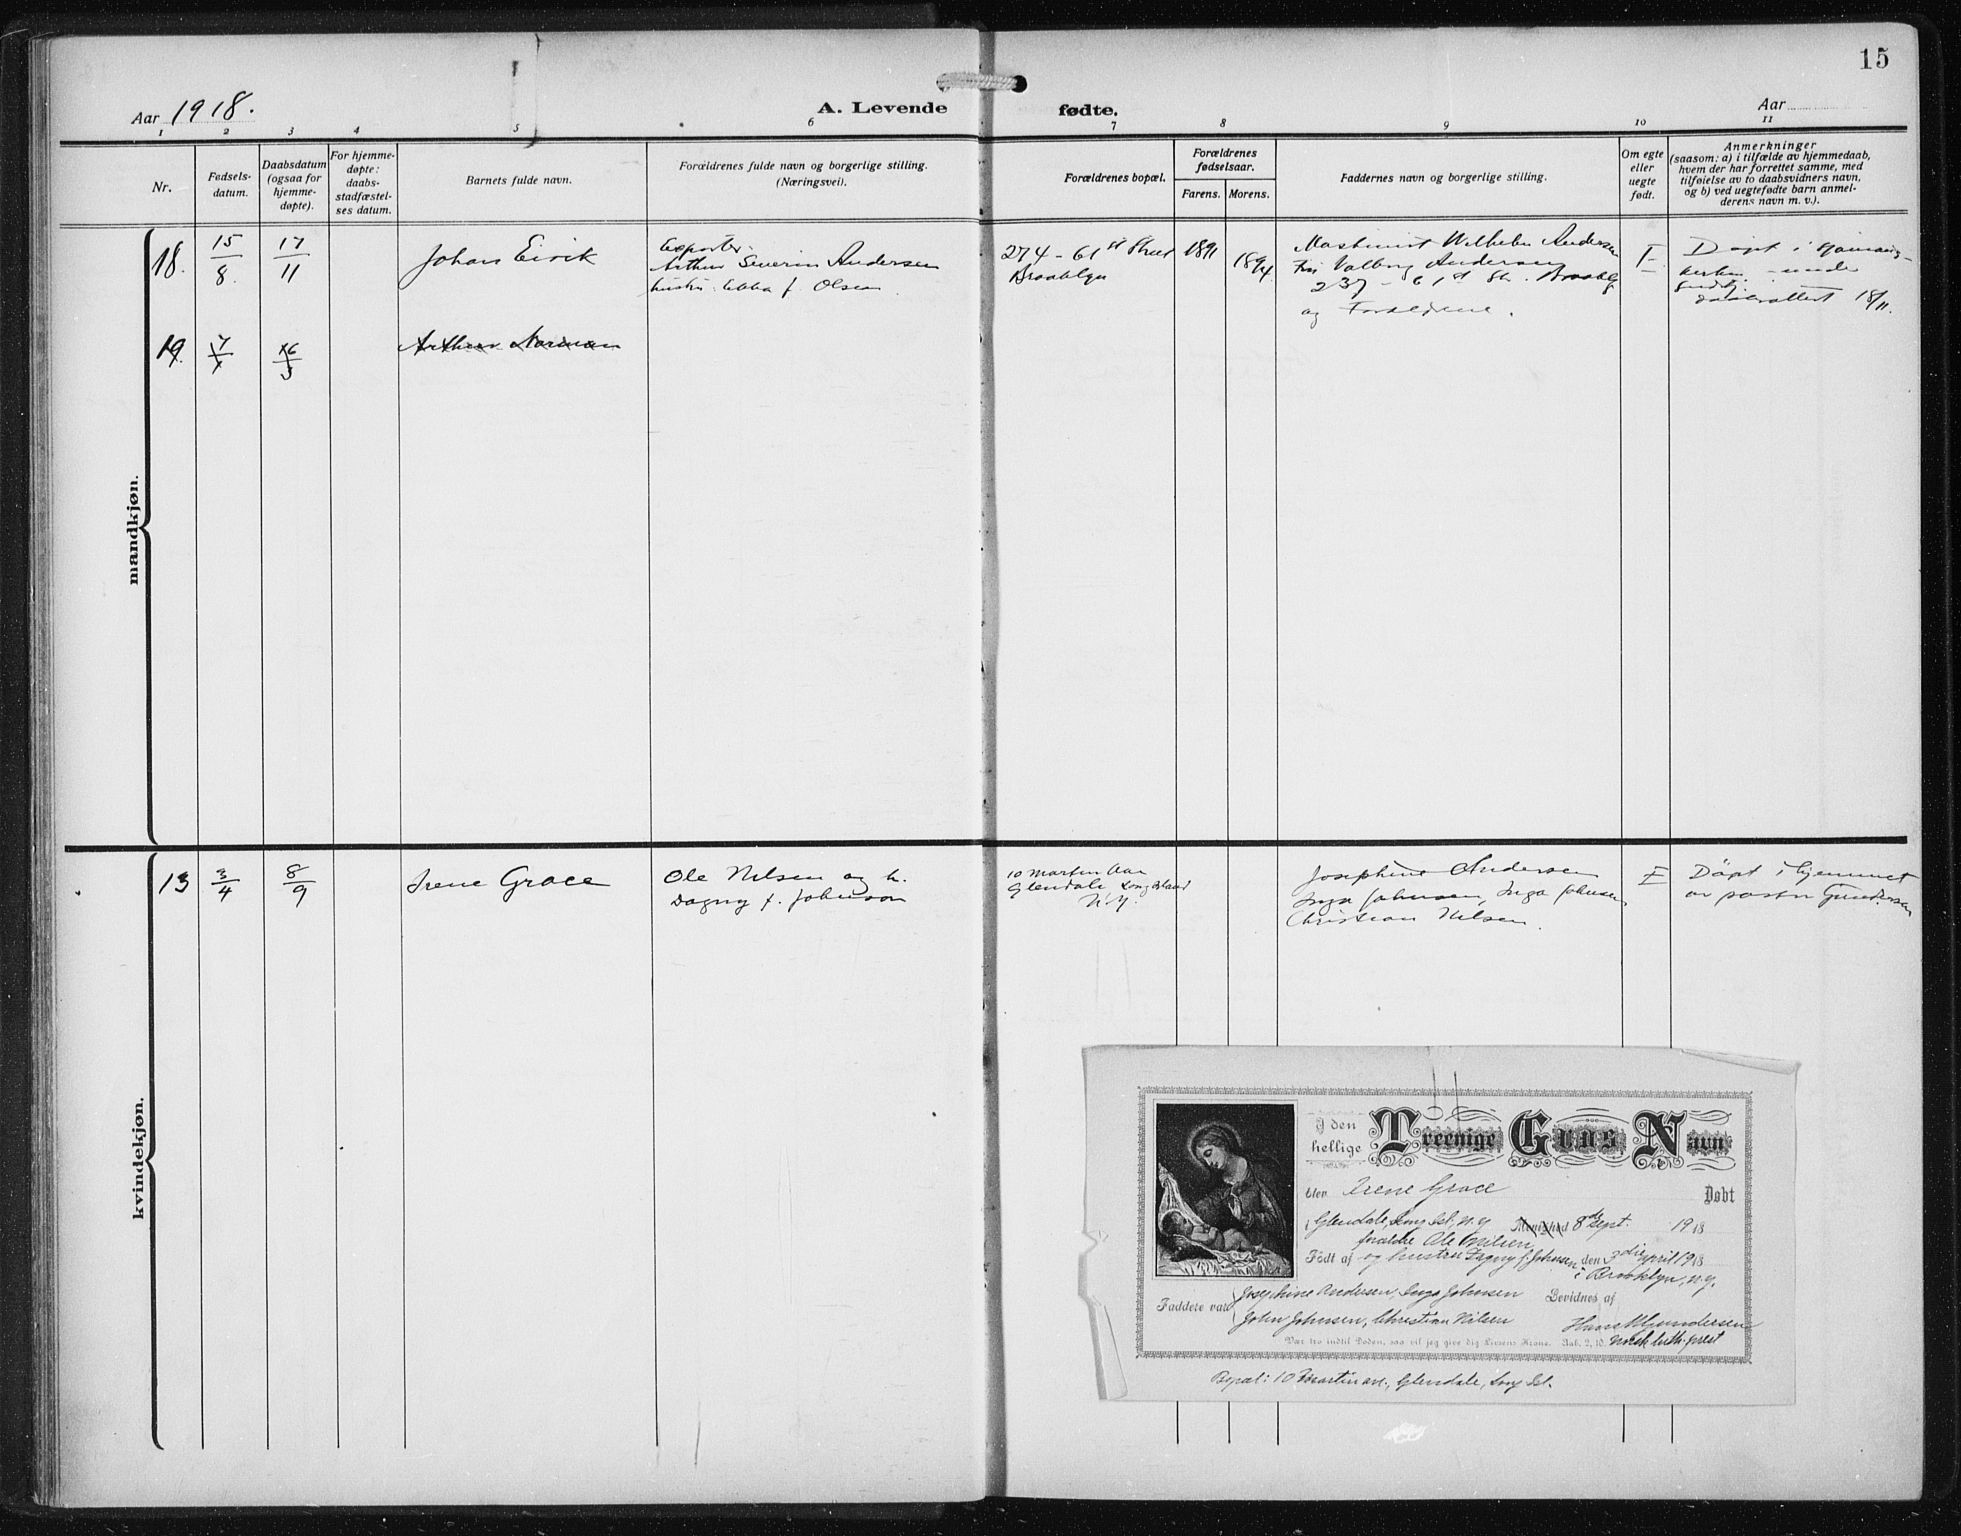 15
Aar 1918.
A. Levende fødte.
Aar
1 2 3 4 5 6 7 8 9 10 11
Nr.
Fødsels-
datum.
Daabsdatum
(ogsaa for
hjemme-
døpte).
For hjemme-
døpte:
daabs-
stadfæstel-
ses datum.
Barnets fulde navn.
Forældrenes fulde navn og borgerlige stilling.
(Næringsvei).
Forældrenes bopæl.
Forældrenes
fødselsaar.
Farens. Morens.
Faddernes navn og borgerlige stilling.
Om egte
eller
uegte
født.
Anmerkninger
(saasom: a) i tilfælde av hjemmedaab,
hvem der har forrettet samme, med
tilføielse av to daabsvidners navn,
og b) ved uegtefødte barn anmel-
derens navn m. v.).
mandkjøn.
18. 15/8. 17/11
Johans Eivik
Arthur Severin Andersen
hustru Ebba f. Olsen
274 - 61st Street
Brooklyn
1891 1894
Maskinist Wilhelm Andersen
Fru Valborg Andersen
237 - 61st Str. Brooklyn
og Forældrene.
E
Døpt i
18/11.
19. 7/ 
Arthur Norman
kvindekjøn.
13 3/4 8/9
Irene Grace
Ole Nilsen og h.
Dagny f. Johnson
10 Martin Ave
Glendale, Long Island
N.Y.
Josephine Andersen
Inga Johnsen, Inga Johnsen,
Christian Nilsen.
E
Døpt i hjemmet
av pastor Gundersen
I den
hellige Treenige Guds Navn
blev Irene Grace Døbt
i Glendale, Long Isl., N.Y. Menighed 8de Sept. 1918
forældre Ole Nilsen
Født af og hustru Dagny f. Johnsen den 3die april 1918
i Brooklyn, N.Y.
Faddere var Josephine Andersen, Inga Johnsen Bevidnes af
John Johnsen, Christian Nilsen Hans M Gundersen
Vær tro indtil Døden, saa vil jeg give dig Livsens Krone. Aab. 2, 10. Norsk luth. prest
Bopæl: 10 Martin ave., Glendale, Long Isl.